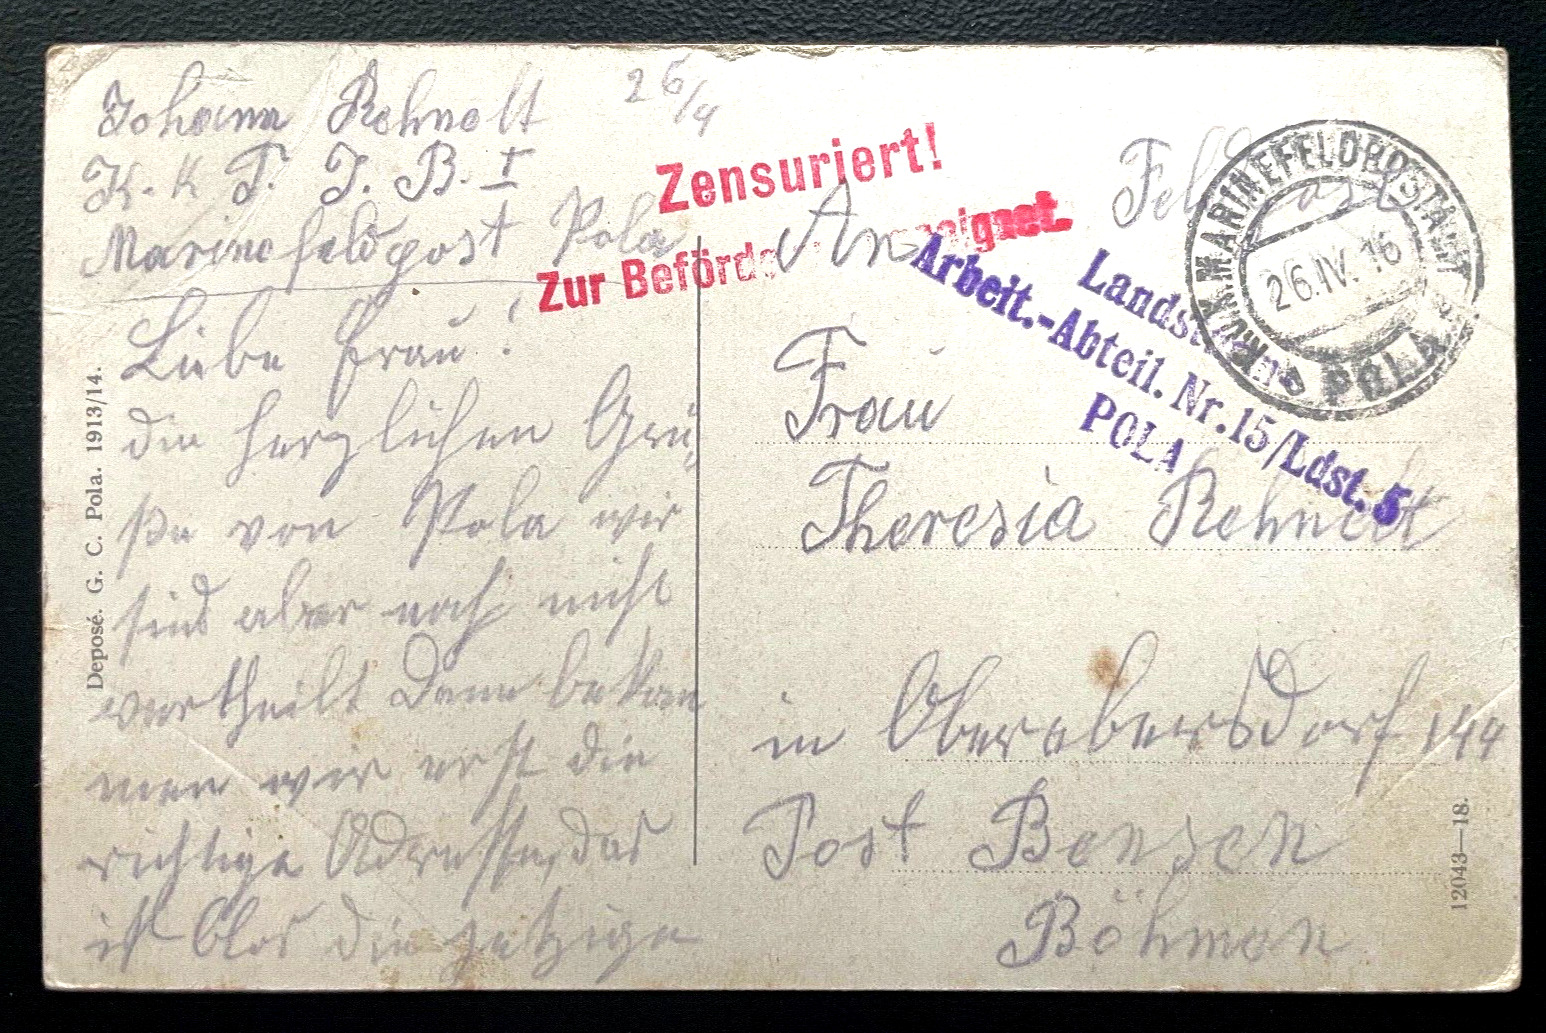 Johann Rehnelt 26/4
K. k T. J. B. I
Marinefeldpost Pola
Liebe Frau!
die herzlichen Grü
ße von Pola wir
sind aber noch nicht
vertheilt Dann bekom
men wir erst die
richtige Adresse, das
ist blos die jetzige
Deposé. G. C. Pola. 1913/14.
Zensuriert!
Zur Beförde geeignet.
Feldpost
K.U.K. MARINEFELDPOSTAMT
26.IV.16
POLA
Arbeit.-Abteil. Nr. 15/Ldst. 5
POLA
An
Frau
Theresia Rehnelt
in Oberebersdorf 144
Post Bensen
Böhmen
12043—18.